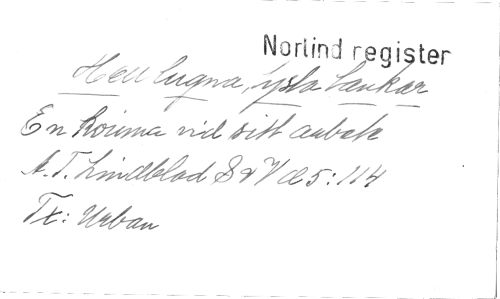 Norlind register
Hell lugna, tysta tankar
En kvinna vid sitt arbete
A. T. Lindblad S & V d 5: 114
Tx: Urban